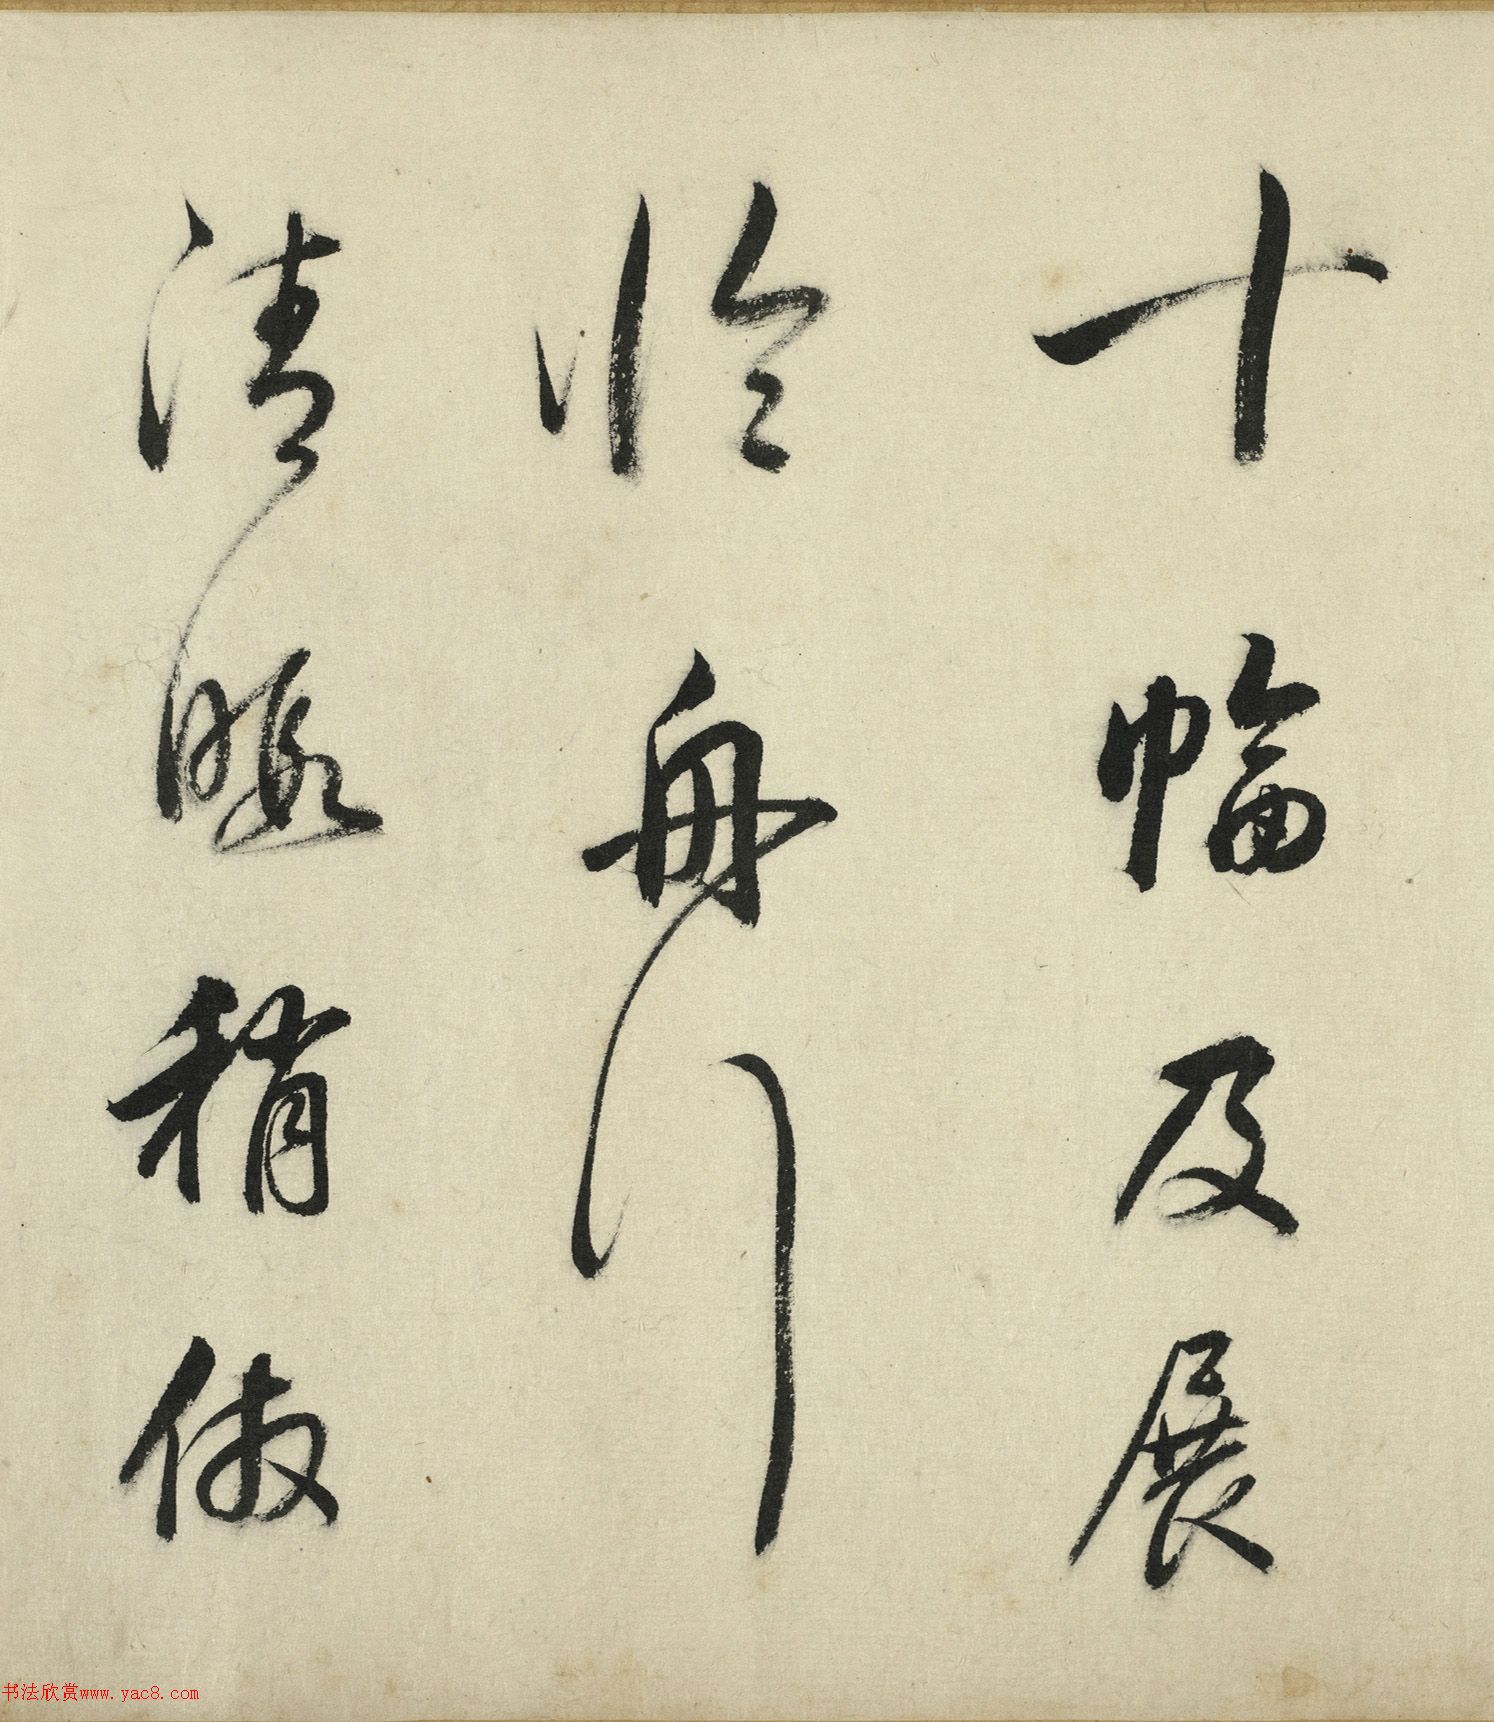 十幅及展
临舟川
清暇稍倣
书法欣赏www.yac8.com